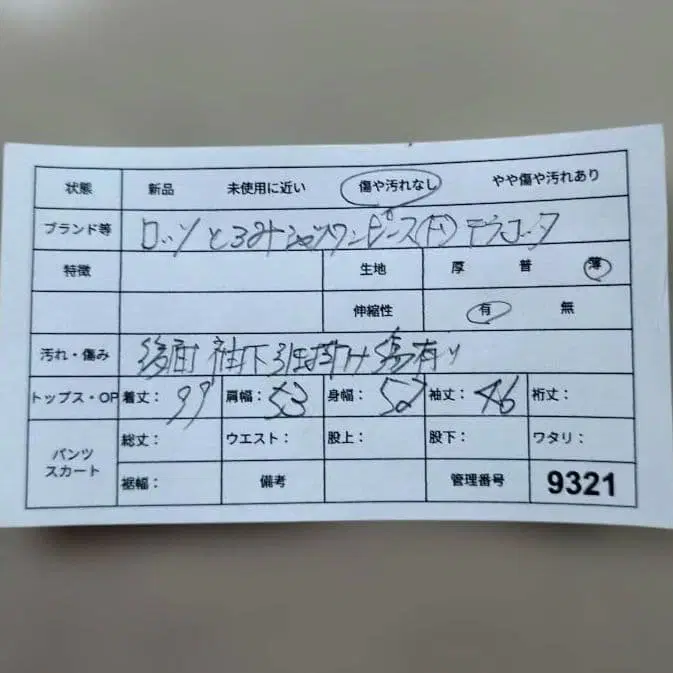 状態 新品 未使用に近い 傷や汚れなし やや傷や汚れあり
ブランド等 ロッソ とろみシャツワンピース(F) テラコッタ
特徴 生地 厚 普 薄
伸縮性 有 無
汚れ・傷み 後面 袖下 引掛け 傷有り
トップス・OP 着丈: 99 肩幅: 53 身幅: 52 袖丈: 46 裄丈:
パンツ スカート 総丈: ウエスト: 股上: 股下: ワタリ:
裾幅: 備考 管理番号 9321